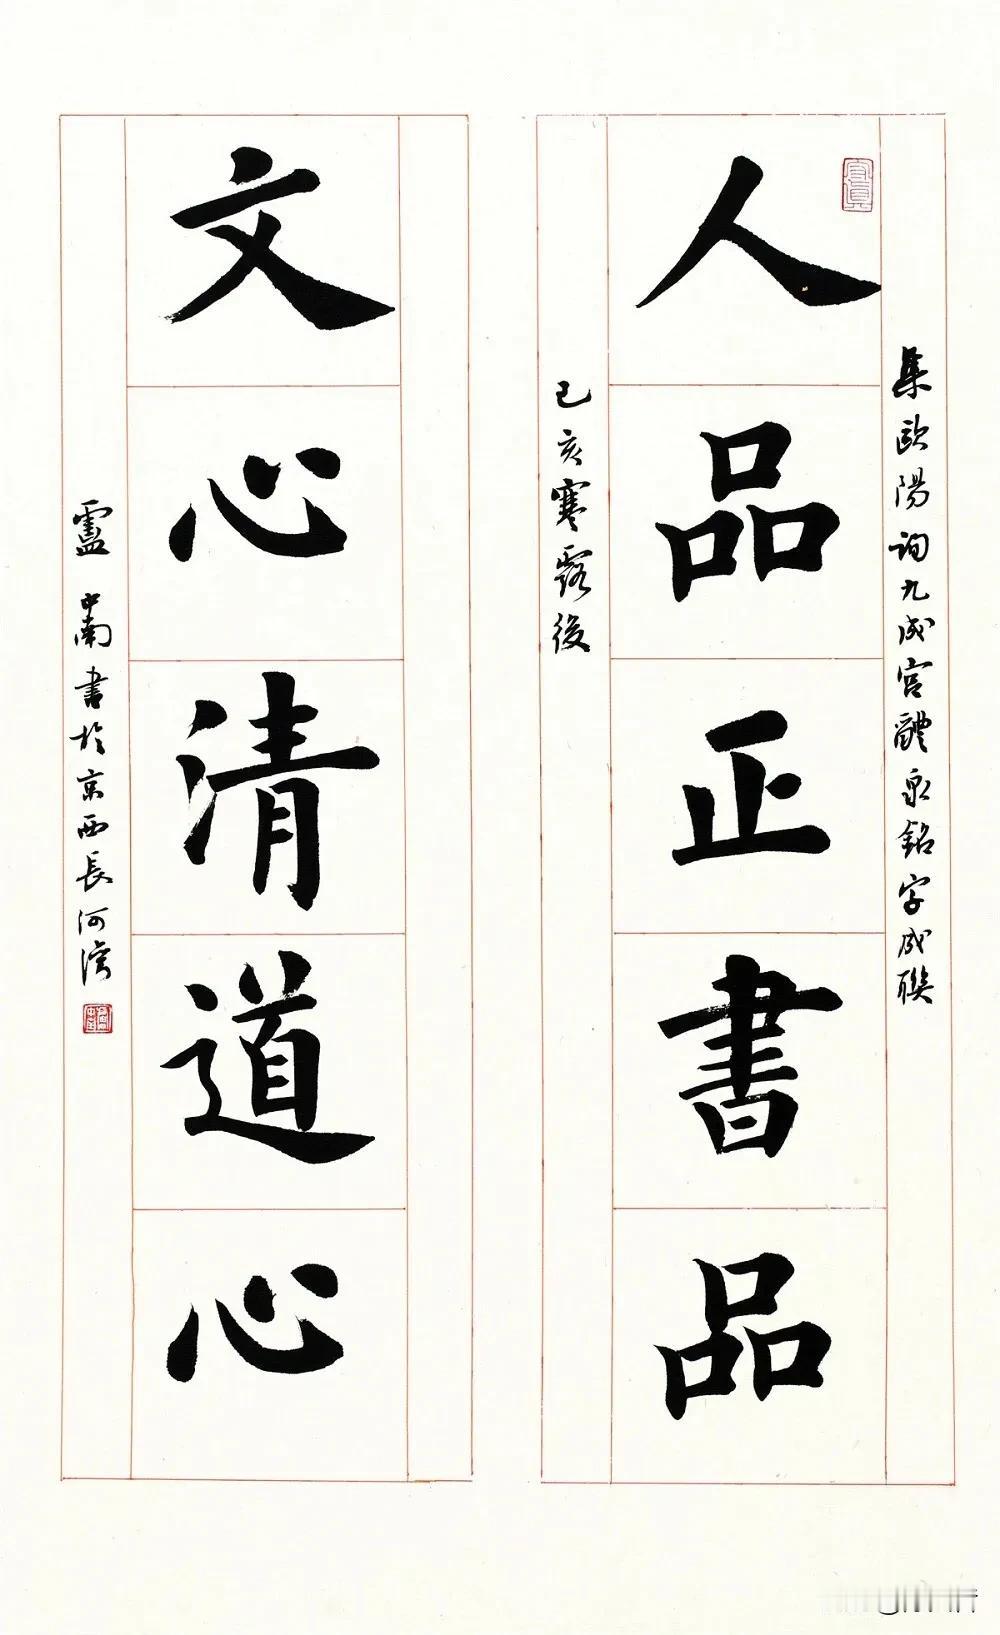 人品正書品
集歐陽詢九成宮醴泉銘字成聯
己亥寒露後
文心清道心
盧中南書於京西長河灣